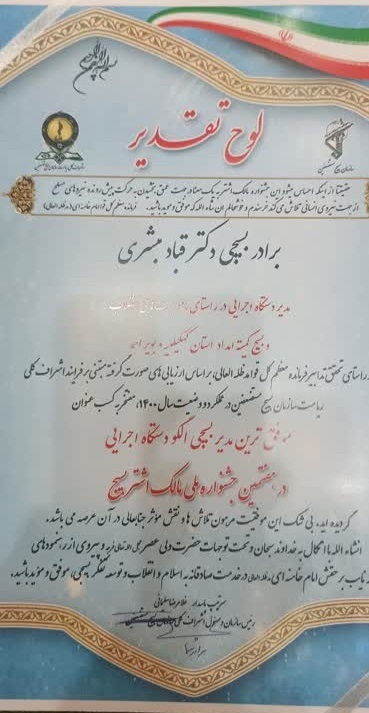 بسم الله الرحمن الرحیم
لوح تقدیر
سازمان بسیج مستضعفین
حقیقتا از اینکه احساس میشود این جشنواره مالک اشتر به یک معنا در جهت عمق بخشیدن به حرکت پیش رونده نیروهای مسلح
از جهت نیروی انسانی تلاش می کند خرسندم و خوشحالم ان شاءالله که موفق و موید باشید. فرمانده معظم کل قوا امام خامنه ای (مدظله العالی)
برادر بسیجی دکتر قباد مبشری
مدیر دستگاه اجرایی در راستای
و بسیج کمیته امداد استان کهگیلویه و بویراحمد
راستای تحقق تدابیر فرمانده معظم کل قوا مدظله العالی، بر اساس ارزیابی های صورت گرفته مبتنی بر فرایند اشراف کلی
ریاست سازمان بسیج مستضعفین در عملکرد و وضعیت سال ۱۴۰۰، مفتخر به کسب عنوان
موفق ترین مدیر بسیجی الگو دستگاه اجرایی
در هفتمین جشنواره ملی مالک اشتر بسیج
گردیده اید. بی شک این موفقیت مرهون تلاش ها و نقش مؤثر جنابعالی در آن عرصه می باشد.
انشاء الله با اتکال به خداوند سبحان و تحت توجهات حضرت ولی عصر و پیروی از رهنمودهای
نایب بر حقش امام خامنه ای مدظله العالی در خدمت صادقانه به اسلام و انقلاب و توسعه تفکر بسیجی، موفق و موید باشید.
سرتیپ پاسدار غلامرضا سلیمانی
رئیس سازمان